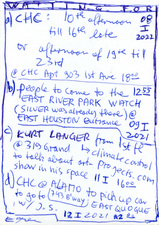 WAITING FOR
a) CHC: 10th afternoon
till 16th late
or afternoon of 19th till
23rd
@ CHC Apt 303 1st Ave 18
08
I
2021
b) people to come to the 12
EAST RIVER PARK WATCH
(SILVER was already there) @
EAST HOUSTON Entrance
09
I
2021
c) KURT LANGER from 1st fl
@ 319 Grand by climate control
to talk about art projects, com
show in his space 11 I 16
d) CHC @ ALAMO to pick up car
to go to EAST QUOGUE
w/ J.S.
12 I 2021